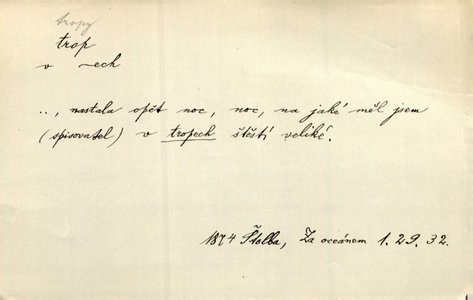 tropy
trop
v ~ech
.., nastala opět noc, noc, na jaké měl jsem
(spisovatel) v tropech štěstí veliké.
1874 Štolba, Za oceánem 1. 29. 32.